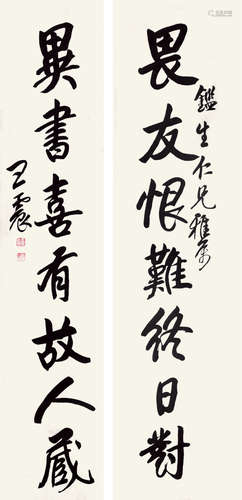 畏友恨難終日對
鑑生仁兄雅屬
異書喜有故人藏
王震